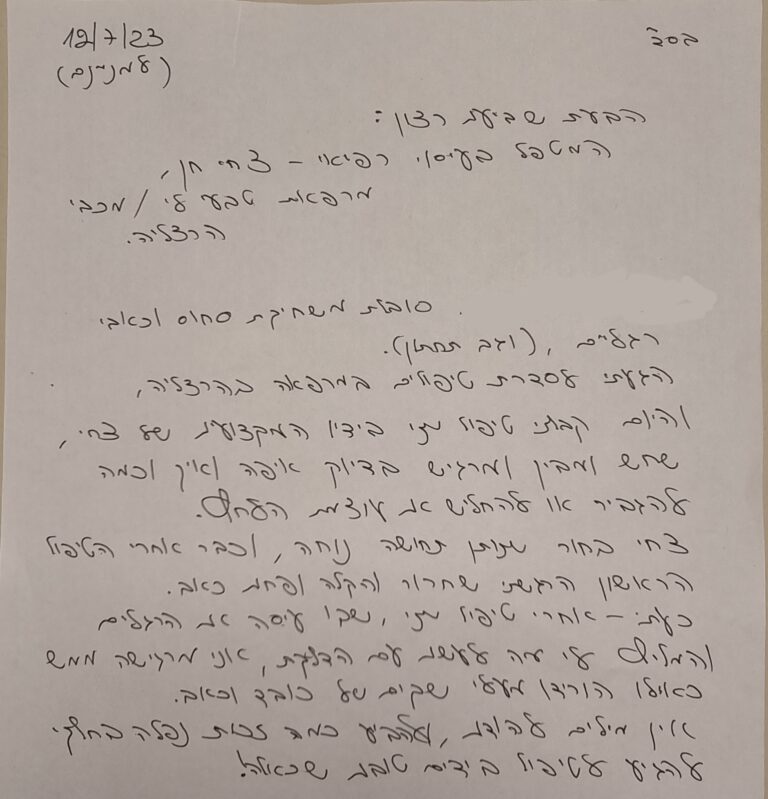 בס"ד
19/7/23
(למניינם)
הבעת שביעת רצון:
המטפל בעיסוי רפואי - צחי חן,
מרפאת טבע לי / מכבי
הרצליה.
סובלת משחיקת סחוס וכאבי
רגליים, (וגב תחתון).
הגעתי לסדרת טיפולים במרפאה בהרצליה,
והיום קבלתי טיפול שני בידיו המקצועיות של צחי,
שחש ומבין ומרגיש בדיוק איפה ואיך וכמה
להגביר או להחליש את עוצמת הלחץ.
צחי בחור שנותן תחושה נוחה, וכבר אחרי הטיפול
הראשון הרגשתי שחרור והקלה ופחות כאב.
כעת - אחרי טיפול שני, שבו עיסה את הרגליים
והמליץ לי מה לעשות עם הדלקת, אני מרגישה ממש
כאילו הורידו מעלי שקים של כובד וכאב.
אין מילים להודות, ולהביע כמה זכות נפלה בחלקי
להגיע לטיפול בידים טובות שכאלה!